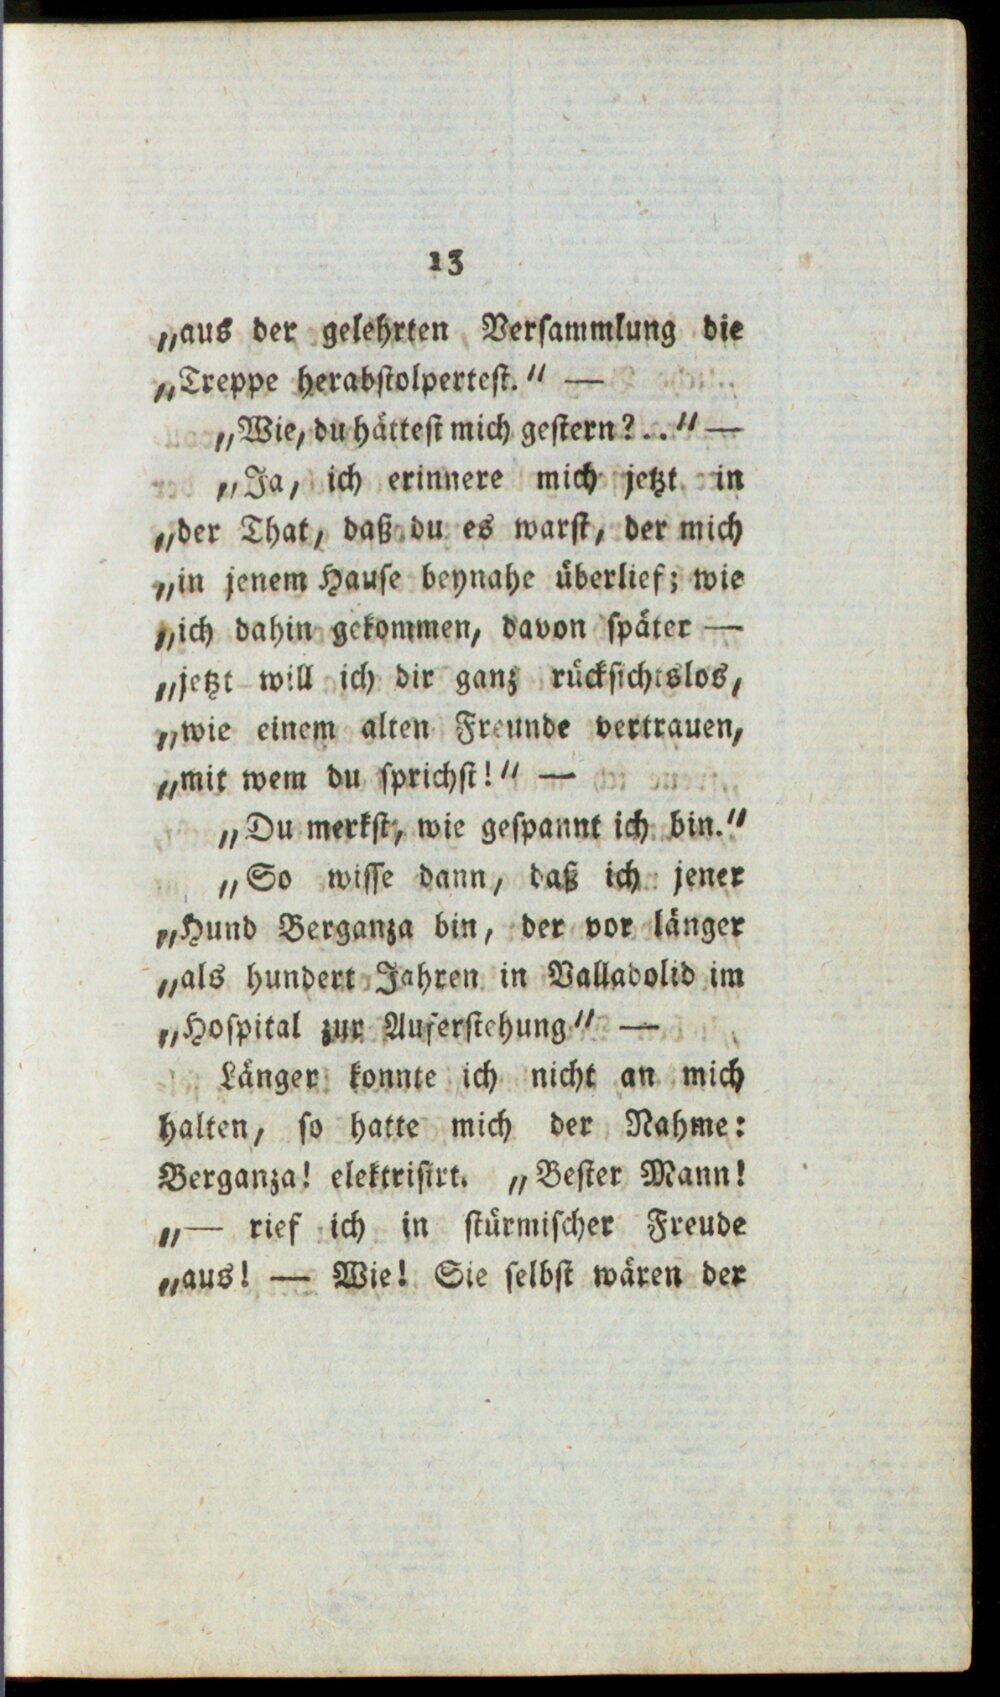 13
„aus der gelehrten Verſammlung die
„Treppe herabſtolperteſt.“ —
„Wie, du hätteſt mich geſtern?..“ —
„Ja, ich erinnere mich jetzt in
„der That, daß du es warſt, der mich
„in jenem Hauſe beynahe überlief; wie
„ich dahin gekommen, davon ſpäter —
„jetzt will ich dir ganz rückſichtslos,
„wie einem alten Freunde vertrauen,
„mit wem du ſprichſt!“ —
„Du merkſt, wie geſpannt ich bin.“
„So wiſſe dann, daß ich jener
„Hund Berganza bin, der vor länger
„als hundert Jahren in Valladolid im
„Hoſpital zur Auferſtehung“ —
Länger konnte ich nicht an mich
halten, ſo hatte mich der Nahme:
Berganza! elektriſirt. „Beſter Mann!
„— rief ich in ſtürmiſcher Freude
„aus! — Wie! Sie ſelbſt wären der